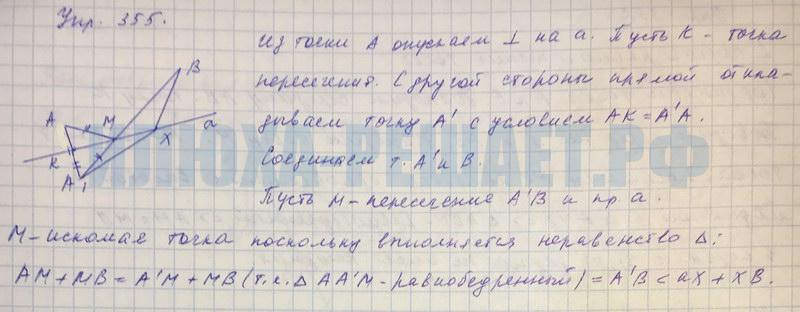 Упр. 355.
из точки А опускаем ⊥ на а. Пусть К - точка
пересечения. С другой стороны прямой откла-
дываем точку А' с условием АК = А'А.
Соединяем т. А' и В.
Пусть М - пересечение А'В и пр а.
М - искомая точка поскольку выполняется неравенство Δ:
АМ + МВ = А'М + МВ (т.к. Δ АА'М - равнобедренный) = А'В < аХ + ХВ.
А
М
В
Х
а
К
А'
ИЛЮХА-РЕШАЕТ.РФ